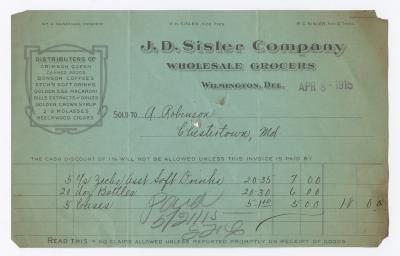 WM. A. President
R. H. SISLER, Vice Pres.
R. C. SISLER, Treas.
DISTRIBUTERS OF
CRIMSON QUEEN
CANNED GOODS
BONSON COFFEES
ZECH'S SOFT DRINKS
GOLDEN EGG MACARONI
GILLS EXTRACTS AND SPICES
GOLDEN CROWN SYRUP
2-B MOLASSES
BEECHWOOD CIGARS
J. D. Sisler Company
WHOLESALE GROCERS
WILMINGTON, DEL. APR 8 - 1915
SOLD TO A. Robinson
Chestertown, Md
THE CASH DISCOUNT OF 1% WILL NOT BE ALLOWED UNLESS THIS INVOICE IS PAID BY
5 Zechs asst Soft Drinks 20-35 7 00
20 doz Bottles 20-30 6 00
5 Cases 5-1.00 5 00 18 00
Paid
5/21/15
READ THIS - NO CLAIMS ALLOWED UNLESS REPORTED PROMPTLY ON RECEIPT OF GOODS.